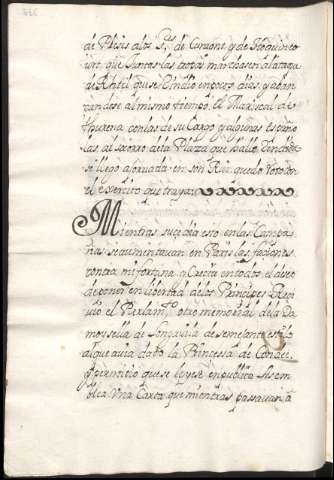 de Plesis a los S.res de Coraone y de Hoquinco
urt que Juntas las tropas marchasen al ataque
de Rhetel que se Rindio en pocos dias y adelan
tandose al mismo tiempo el Mariscal de
Thurena con las de su Cargo y algunas Españo
las al socorro de la Plaza que hallo Rendida
se llegó a Jornada en son Rui quedo Roto con
el exercito que traya
Mientras sucedia esto en la Campa
ña se aumentavan en Paris las faciones
contra mi fortuna, Crecia en todos el deseo
de poner en libertad a los Principes Reci
vio el Parlam.to otro memorial de la Da
moysella de Longavila de semejante estilo
al que avia dado la Princessa de Conde,
y permitio que se leyese en publica Assem
blea Una Carta que mientras passavan a